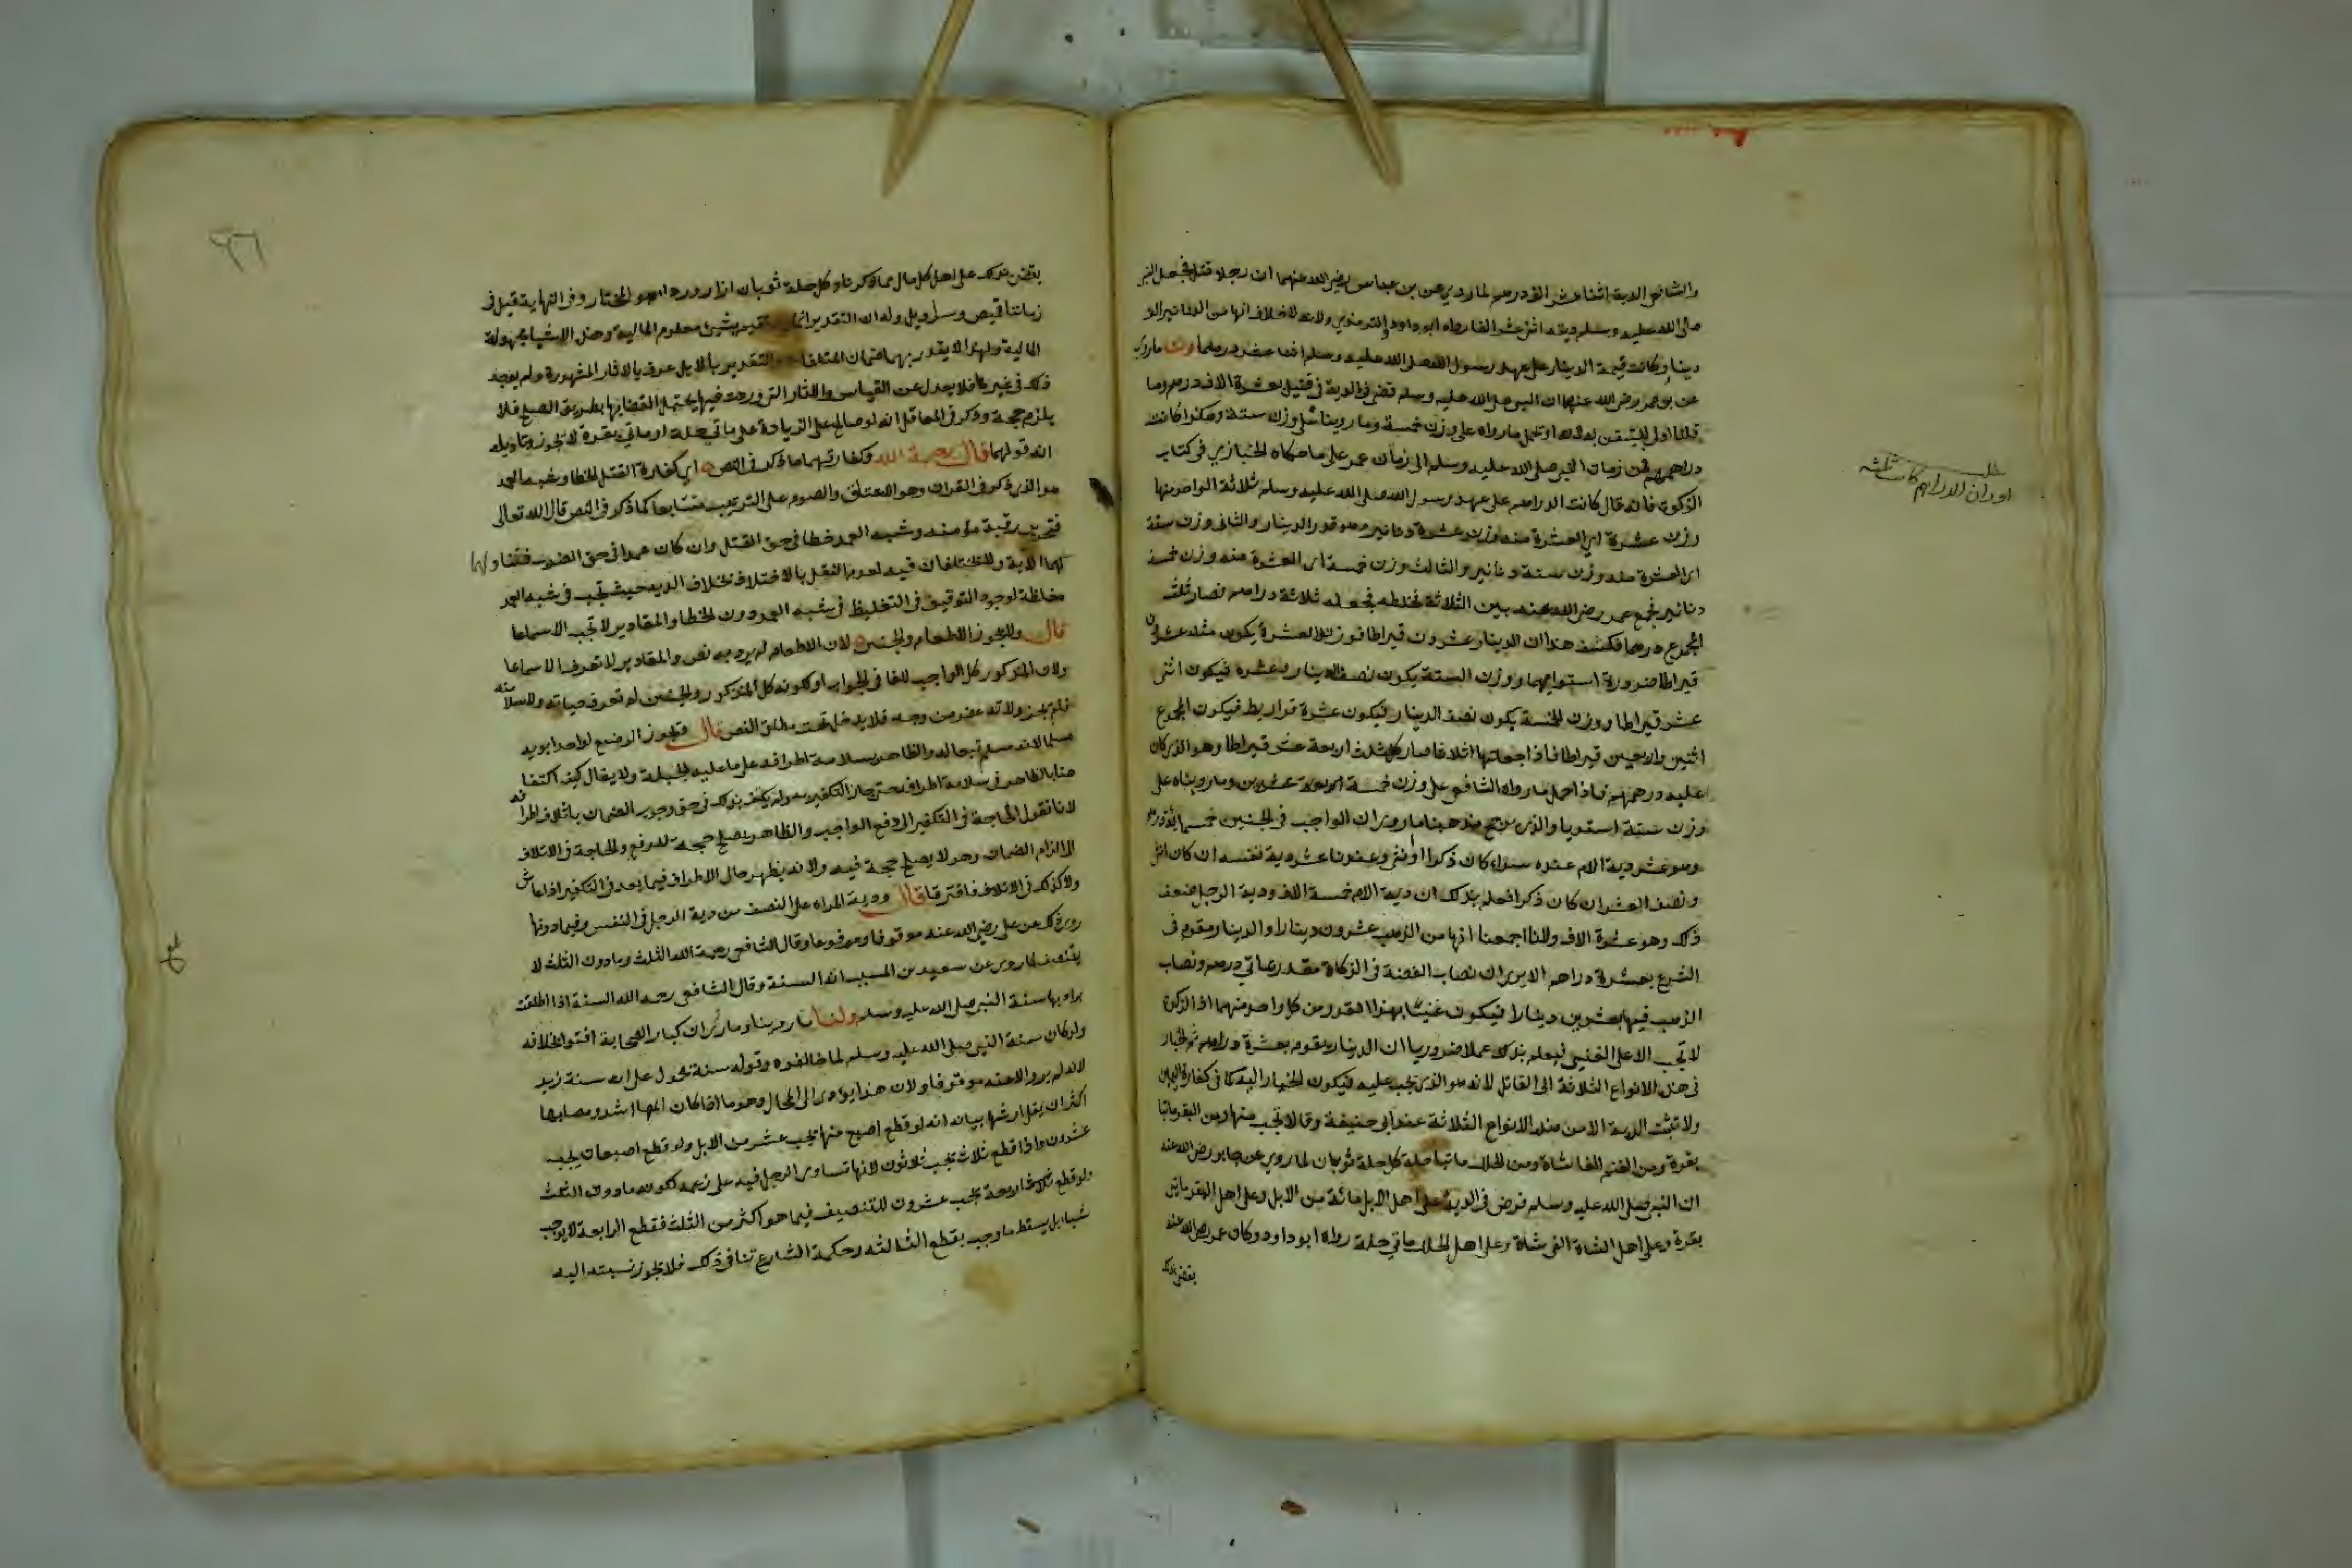 والشافعي الدية اثنا عشر الف درهم لما روي عن بن عباس رضي الله عنهما ان رجلا قتل فجعل النبي
صلى الله عليه وسلم ديته اثني عشر الفا رواه ابو داود والترمذي ولانه لا خلاف انها من الدنانير الف
دينار وكانت قيمة الدينار على عهد رسول الله صلى الله عليه وسلم اثنا عشر درهما ولنا ما روي
عن بن عمر رضي الله عنهما ان النبي صلى الله عليه وسلم قضى في الدية في قتيل بعشرة الاف درهم وما
قلنا اولى للتيقن به لانه او يحمل ما رواه على وزن خمسة وما روينا على وزن ستة وهكذا كانت
دراهمهم من زمان النبي صلى الله عليه وسلم الى زمان عمر على ما حكاه الخبازي في كتاب
الزكوة فانه قال كانت الدراهم على عهد رسول الله صلى الله عليه وسلم ثلاثة الواحد منها
وزن عشرة اي العشرة منه وزن عشرة دنانير وهو قدر الدينار والثاني وزن ستة
اي العشرة منه وزن ستة دنانير والثالث وزن خمسة اي العشرة منه وزن خمسة
دنانير فجمع عمر رضي الله عنه بين الثلاثة فخلطه فجعله ثلاثة دراهم فصار ثلث
المجموع درهما فكشف هذا ان الدينار عشرون قيراطا فوزن العشرة يكون مثله عشرون
قيراطا ضرورة استوائهما ووزن الستة يكون نصف الدينار وعشره فيكون اثنى
عشر قيراطا ووزن الخمسة يكون نصف الدينار فيكون عشرة قراريط فيكون المجموع
اثنين واربعين قيراطا فاذا جعلتها اثلاثا صار كل ثلث اربعة عشر قيراطا وهو الذي كان
عليه درهمهم فاذا حمل ما رواه الشافعي على وزن خمسة وما رويناه على
وزن ستة استويا والذي يرجح مذهبنا ما روي ان الواجب في الجنين خمسمائة درهم
وهو عشر دية الام عنده سواء كان ذكرا او انثى وعندنا عشر دية نفسه ان كان انثى
ونصف العشر ان كان ذكرا فعلم بذلك ان دية الام خمسة الاف ودية الرجل ضعف
ذلك وهو عشرة الاف ولانا اجمعنا انها من الذهب دينارا والدينار مقوم في
الشرع بعشرة دراهم الا يرى ان نصاب الفضة في الزكاة مقدر بمائتي درهم ونصاب
الذهب فيها بعشرين دينارا فيكون غنيا بهذا القدر من كل واحد منهما اذ الزكوة
لا تجب الا على الغني فيعلم بذلك علما ضروريا ان الدينار مقوم بعشرة دراهم ثم الخيار
في هذه الانواع الثلاثة الى القاتل لانه هو الذي تجب عليه فيكون الخيار اليه كما في كفارة اليمين
ولا تثبت الدية الا من هذه الانواع الثلاثة عند ابي حنيفة وقالا تجب منها ومن البقر مائتا
بقرة ومن الغنم الفا شاة ومن الحلل مائتا حلة كل حلة ثوبان لما روي عن جابر رضي الله عنه
ان النبي صلى الله عليه وسلم فرض في الدية على اهل الابل مائة من الابل وعلى اهل البقر مائتي
بقرة وعلى اهل الشاة الفي شاة وعلى اهل الحلل مائتي حلة رواه ابو داود وكان عمر رضي الله عنه
يقضي بذلك
اوزان الدراهم كانت ثلاثة
٩٦
يقضي بذلك على اهل كل مال مما ذكرنا وكل حلة ثوبان ازار ورداء هو المختار وفي النهاية قيل في
زماننا قميص وسراويل وله ان التقدير انما يستقيم بشيء معلوم المالية وهذه الاشيا مجهولة
المالية ولهذا لا يقدر بها ضمان المتلفات والتقدير بالابل عرف بالاثار المشهورة ولم يوجد
ذلك في غيرها فلا يعدل عن القياس والاثار التي وردت فيها يحتمل القضا بها بطريق الصلح فلا
يلزم حجة وذكر في المعاقل انه لو صالح على الزيادة على مائتي حلة او مائتي بقرة لا يجوز وتاويله
انه قولهما قال رحمه الله وكفارتهما ما ذكر في النص اي كفارة القتل الخطا وشبه العمد
هو الذي ذكر في القران وهو الاعتاق والصوم على الترتيب متتابعا كما ذكر في النص قال الله تعالى
فتحرير رقبة مؤمنة وشبه العمد خطا في حق القتل وان كان عمدا في حق الضرب فتناولهما
الاية ولا يختلفان فيه لعدم النقل بالاختلاف بخلاف الدية حيث تجب في شبه العمد
مغلظة لوجود التوقيف في التغليظ في شبه العمد دون الخطا والمقادير لا تجب الا سماعا
قال ولا يجوز الاطعام والجنين لان الاطعام لم يرد به نص والمقادير لا تعرف الا سماعا
ولان المذكور كل الواجب للفا في الجواب او لكونه كل المذكور والجنين لم تعرف حياته ولا سلامته
فلم يجز ولانه عضو من وجه فلا يدخل تحت مطلق النص قال ويجوز الرضيع لو احد ابويه
مسلما لانه مسلم تبعا له والظاهر سلامة اطرافه على ما عليه الجبلة ولا يقال كيف اكتفى
هنا بالظاهر في سلامة اطرافه حتى جاز التكفير به ولم يكتف بذلك في حق وجوب الضمان باتلاف اطرافه
لانا نقول الحاجة في التكفير الى دفع الواجب والظاهر يصلح حجة للدفع والحاجة في الاتلاف
الى الزام الضمان وهو لا يصلح حجة فيه ولانه يظهر حال الاطراف فيما بعد في التكفير اذا عاش
ولا كذلك في الاتلاف فافترقا قال ودية المراة على النصف من دية الرجل في النفس وفيما دونها
روي ذلك عن علي رضي الله عنه موقوفا ومرفوعا وقال الشافعي رحمه الله الثلث وما دون الثلث لا
يتنصف لما روي عن سعيد بن المسيب انه السنة وقال الشافعي رحمه الله السنة اذا اطلقت
يراد بها سنة النبي صلى الله عليه وسلم ولنا ما روينا وما روي ان كبار الصحابة افتوا بخلافه
ولو كان سنة النبي صلى الله عليه وسلم لما خالفوه وقوله سنة محمول على انه سنة زيد
لانه لم يرو الا عنه موقوفا ولان هذا يؤدي الى المحال وهو ما اذا كان المها اشد ومصابها
اكثر ان يقل ارشها بيانه انه لو قطع اصبع منها يجب عشر من الابل ولو قطع اصبعان يجب
عشرون واذا قطع ثلاث تجب ثلاثون لانها تساوي الرجل فيه على زعمه لكونه ما دون الثلث
ولو قطع اربعة يجب عشرون للتنصيف فيما هو اكثر من الثلث فقطع الرابعة لا يوجب
شيئا بل يسقط ما وجب بقطع الثالثة وحكمة الشارع تنافي ذلك فلا تجوز نسبته اليه